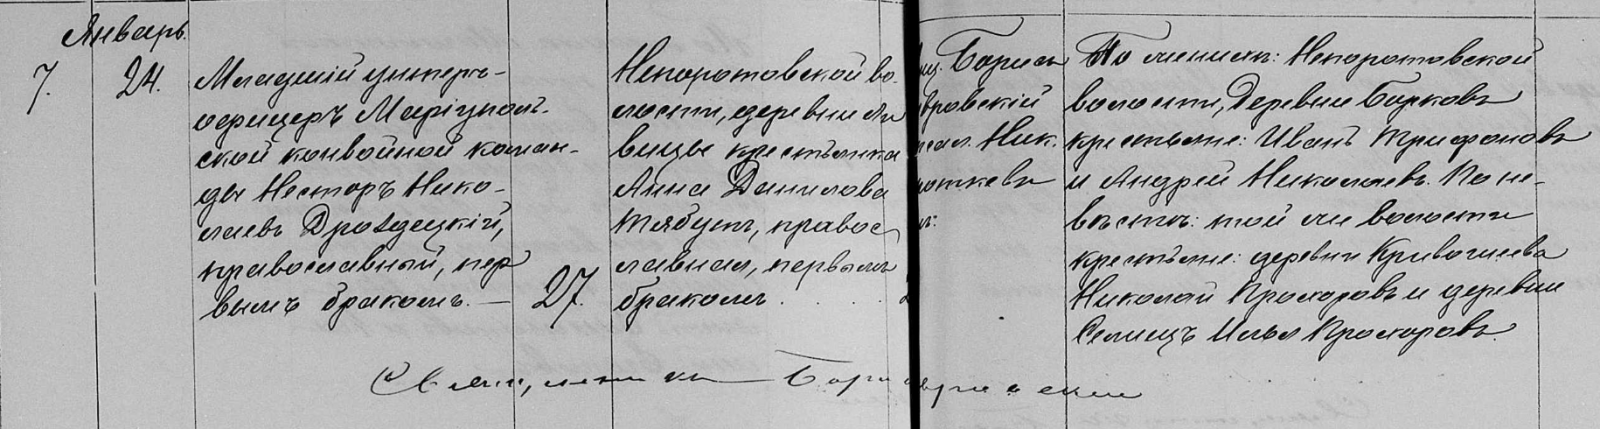 Январь
7. 24.
Младшій унтеръ-
офицеръ Маріуполь-
ской конвойной коман-
ды Несторъ Нико-
лаевъ Дроздецкій,
православный, пер
вымъ бракомъ. —
27.
Непоротовской во-
лости, деревни
вицы крестьянка
Анна Данилова
Тябут, правос
лавная, первымъ
бракомъ
Борисъ
вровскій
Ник.
По женихѣ: Непоротовской
волости, деревни Борковъ
крестьяне: Иванъ Трифоновъ
и Андрей Николаевъ. По не-
вѣстѣ: той же волости
крестьяне: деревни
Николай Прохоровъ и деревни
Селищъ Илья Прохоровъ.
Священникъ